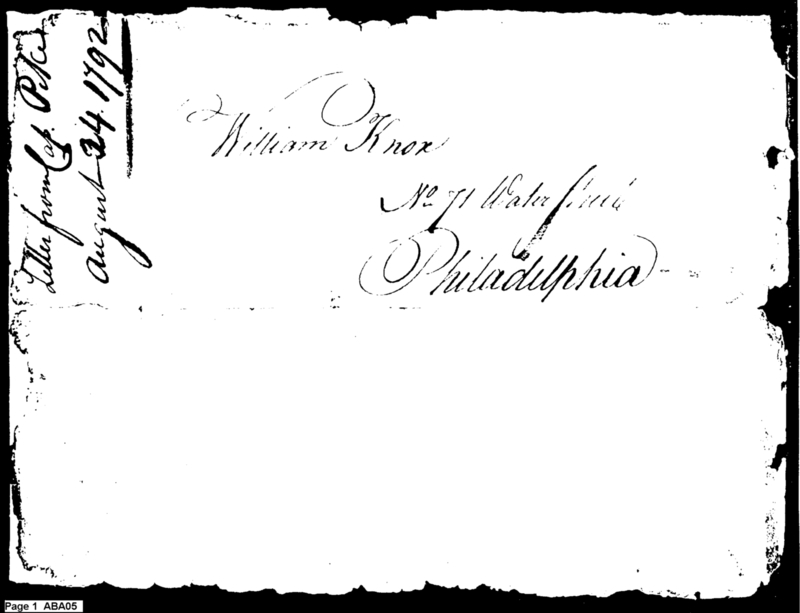 Letter from Cap. Pike
August 24 1792
William Knox
No 71 Water street
Philadelphia
Page 1 ABA05